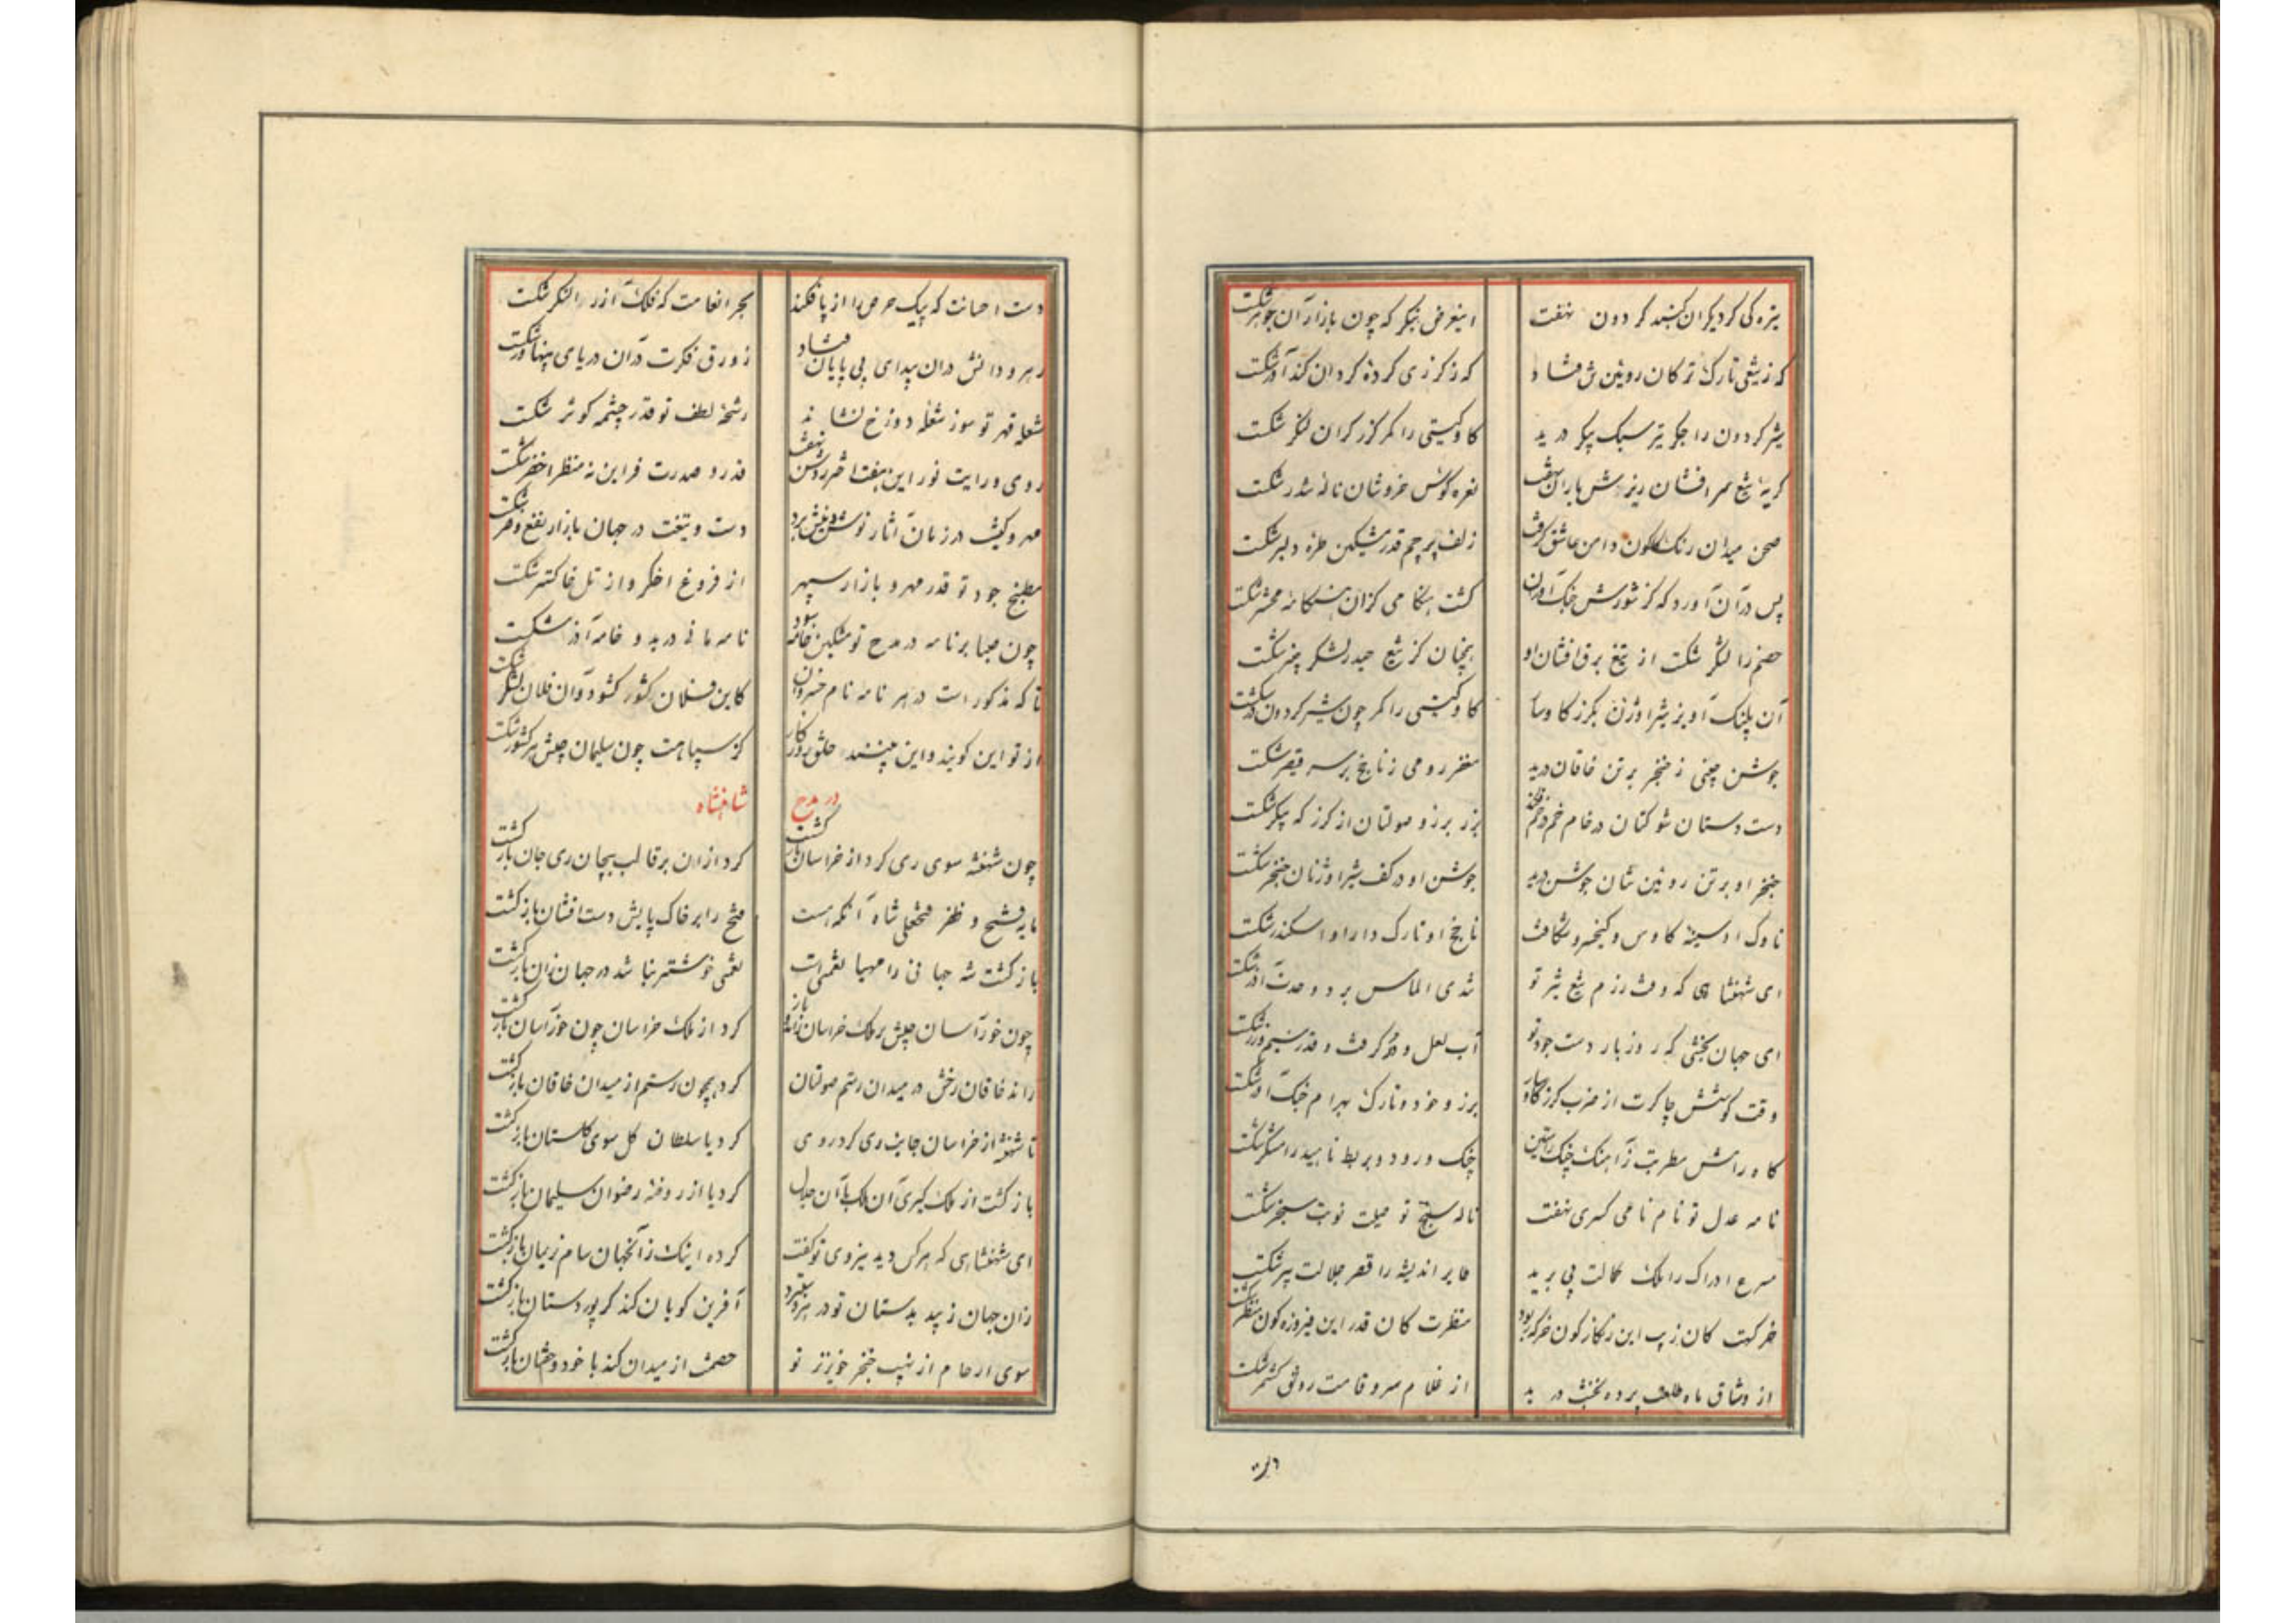 تیره کی کرد یکران کنبد کردون نهفت اینعرض بنکر که چون بازار آن جوهر شکست
که ز تیغی تارک ترکان روئین تن فشاند که ز کرزی کرده کردان کندآور شکست
شیر کردون را جکر تیر سبک پیکر درید کاو کیتی را کمر کرز کران لنکر شکست
کریه تیغ سر افشان ریزش باران نهفت نعره کوس خروشان ناله تندر شکست
صحن میدان رنک کلکون دامن عاشق کرفت زلف پرچم قدر مشکین طره دلبر شکست
پس در آن آورد که کز شورش جنک آوران کشت هنکامی کزان هنکامه محشر شکست
خصم را لشکر شکست از تیغ برق افشان او همچنان کز تیغ حیدر لشکر خیبر شکست
آن پلنک آویز شیر اوژن بکرز کاوسار کاو کیتی را کمر چون شیر کردون در شکست
جوشن چینی ز خنجر بر تن خاقان درید مغفر رومی ز ناچخ بر سر قیصر شکست
دست دستان شوکتان در خام خم در خم فکند برز برزو صولتان از کرز که پیکر شکست
خنجر او بر تن روئین تنان جوشن درید جوشن او در کف شیر اوژنان خنجر شکست
ناوک او سینه کاوس و کیخسرو شکافت ناچخ او تارک دارا و اسکندر شکست
ای شهنشاهی که وقت رزم تیغ تیز تو تندی الماس برد و حدت آذر شکست
ای جهان بخشی که روز بار دست جود تو آب لعل و در کرفت و قدر سیم و زر شکست
وقت کوشش چاکرت از ضرب کرز کاوسار برز و خود و تارک بهرام جنک آور شکست
کاه رامش مطربت ز آهنک چنک راستین چنک و رود و بربط ناهید رامشکر شکست
نامه عدل تو نام نامی کسری نهفت ناله سنج تو صیت نوبت سنجر شکست
سرع ادراک را ملک کمالت پی برید طایر اندیشه را قصر جلالت پر شکست
خرکهت کان زیب این زنکار کون خرکه ربود منظرت کان قدر این فیروزه کون منظر شکست
از وشاق ماه طلعت پرده درید از غلام سرو قامت رونق کشمر شکست
دست احسانت که پیک حرص را از پا فکند بحر انعامت که فلک آز را لنکر شکست
رهرو دانش در ان بیدای بی پایان فتاد زورق فکرت در آن دریای پهناور شکست
شعله قهر تو سوز شعله دوزخ نشاند رشحه لطف تو قدر چشمه کوثر شکست
روی و رایت نور این هفت اختر روشن نهفت قدر و صدرت فر این نه منظر اخضر شکست
مهر و کینت در زمان آثار نوش و نیش برد دست و تیغت در جهان بازار نفع و ضر شکست
مطبخ جود تو قدر مهر و بازار سپهر از فروغ اخکر و از تل خاکستر شکست
چون صبا بر نامه در مدح تو مشکین خامه سود نامه مانی درید و خامه آذر شکست
تا که مذکور است در هر نامه نام خسروان کاین فلان کشور کشود و آن فلان لشکر شکست
از تو این کویند و این بینند خلق روزکار کز سپاهت چون سلیمان جیش هر کشور شکست
در مدح شاهنشاه
چون شهنشه سوی ری کرد از خراسان باز کشت کرد از ان بر قالب بیجان ری جان باز کشت
مایه فتح و ظفر فتحعلی شاه آنکه هست فتح را بر خاک پایش دست افشان باز کشت
باز کشت شه جهانی را مهیا نعمتی است نعمتی خوشتر نباشد در جهان زان باز کشت
چون خور آسان جیش بر ملک خراسان رانده باز کرد از ملک خراسان چون خور آسان باز کشت
راند خاقان رخش در میدان رستم صولتان کرد همچون رستم از میدان خاقان باز کشت
تا شهنشه از خراسان جانب ری کرد روی کرد یا سلطان کل سوی کلستان باز کشت
باز کشت از ملک کیری آن ملک با آن جلال کرد یا از روضه رضوان سلیمان باز کشت
ای شهنشاهی که هر کس دید نیروی تو کفت کرده اینک زانجهان سام نریمان باز کشت
زان جهان زیبد بدستان تو در هر دستبرد آفرین کویان کند کر پور دستان باز کشت
سوی ارحام از نهیب خنجر خونریز تو خصمت از میدان کند با خود و خفتان باز کشت